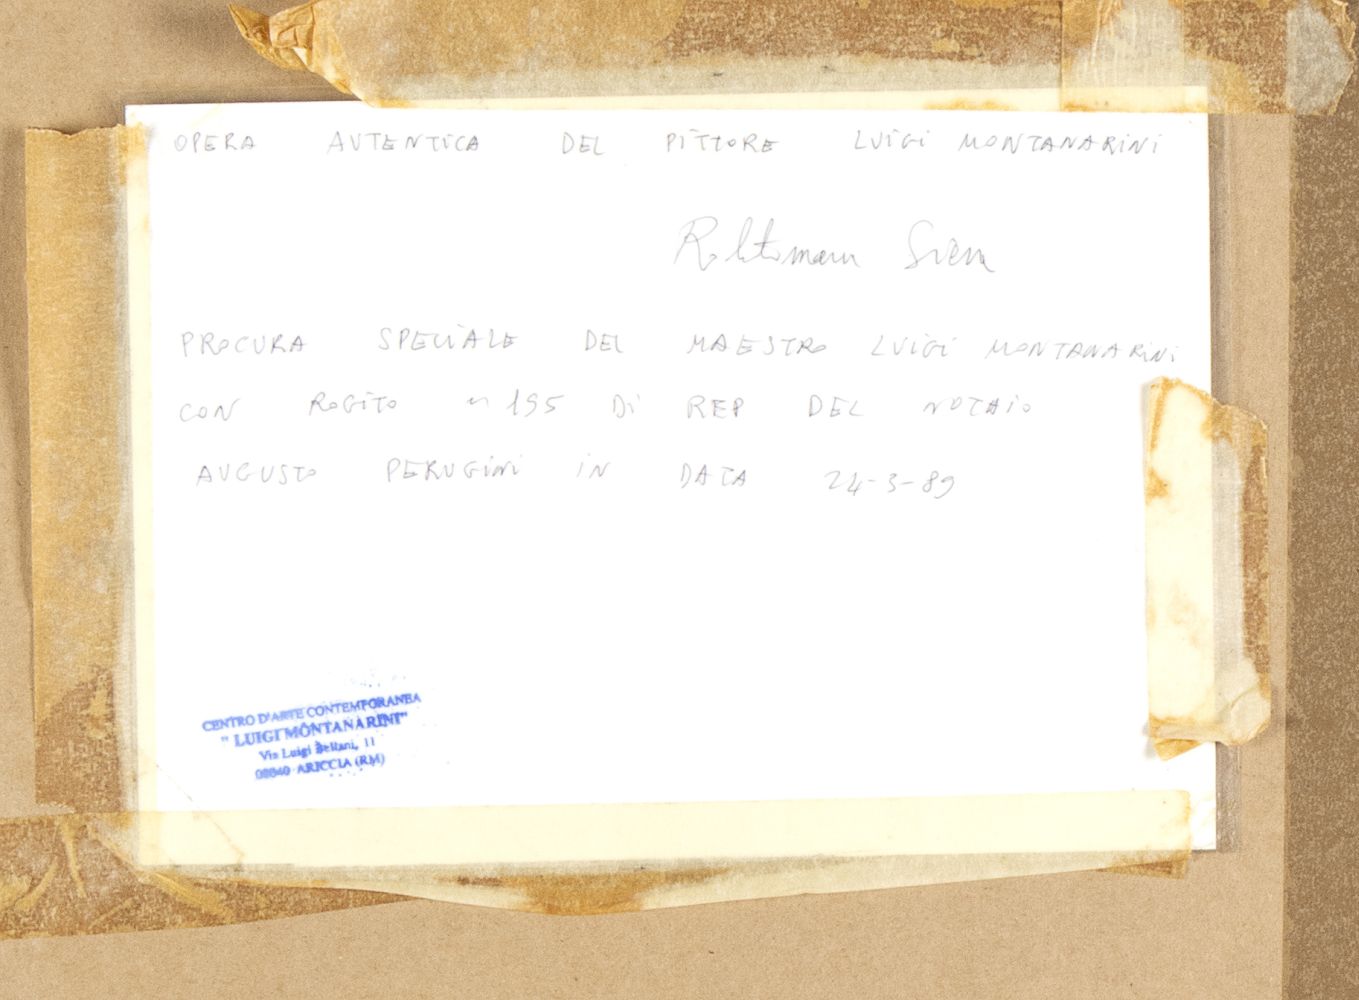 OPERA AUTENTICA DEL PITTORE LUIGI MONTANARINI
PROCURA SPECIALE DEL MAESTRO LUIGI MONTANARINI
CON ROGITO n 195 Di REP DEL NOTAIO
AUGUSTO PERUGINI IN DATA 24-3-89
CENTRO D'ARTE CONTEMPORANEA
"LUIGI MONTANARINI"
Via Luigi 11
00040 ARICCIA (RM)